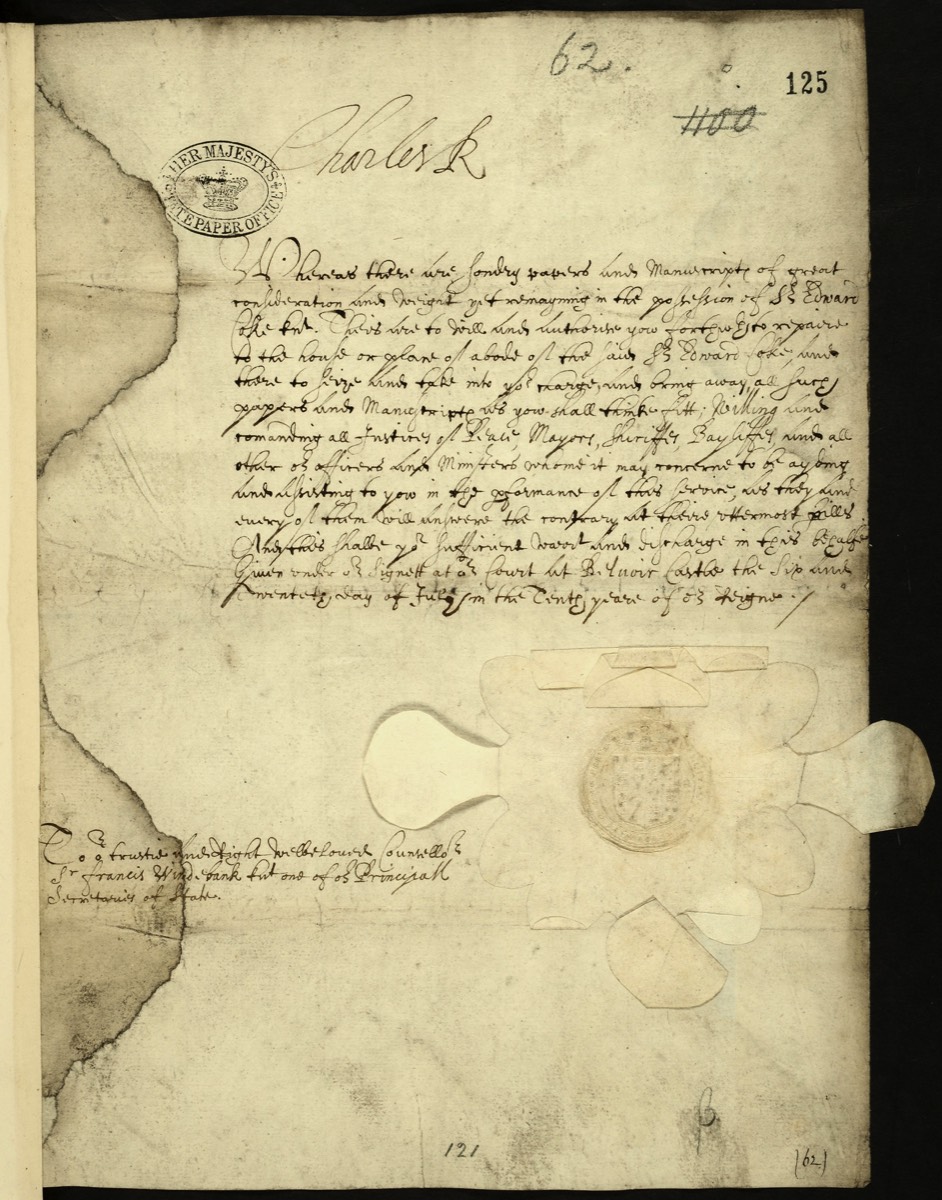 62.
125
1100
Charles R
HER MAJESTY'S
STATE PAPER OFFICE
Whereas there are sondry papers and Manuscripts of great
consideration and weight yet remayning in the possession of Sr Edward
Coke knt. Theis are to will and authorise yow forthwth to repaire
to the house or place of abode of the said Sr Edward Coke, and
there to seize and take into yor charge, and bring away all such
papers and Manuscripts as yow shall thinke fitt; Willing and
comanding all Justices of Peace, Mayors, Shiriffes, Bayliffes, and all
other or officers and Ministers whome it may concerne to be ayding
and assisting to yow in the pformance of this service, as they and
every of them will answere the contrary at theire vttermost pills
And this shalbe yor sufficient warrt and discharge in this behalfe
Given vnder or Signett at or Court at Belvoir Castle the Six and
Twenteth day of July in the Tenth yeare of or Reigne./
To or trustie and Right welbeloved Counsellor
Sr Francis Windebank knt one of or Principall
Secretaries of State.
121
(62)